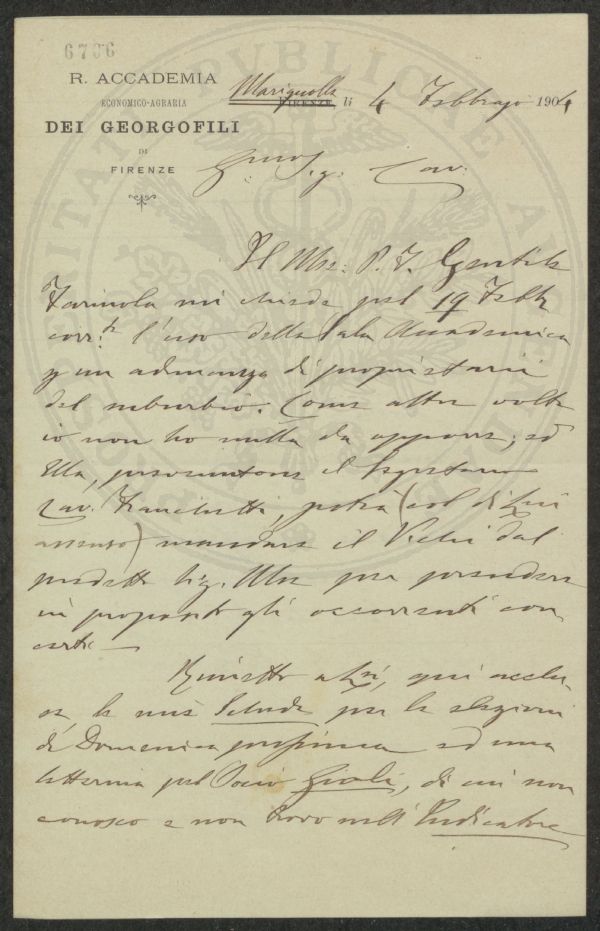 6706
R. ACCADEMIA
ECONOMICO-AGRARIA
DEI GEORGOFILI
DI
FIRENZE
Marignolle
FIRENZE, li 4 Febbrajo 1904
Sig. Cav.
Il Mse: P. F. Gentile
Farinola mi chiede pel 19 Febb.
corr.te l'uso della Sala Accademica
p un adunanza di proprietarii
del suburbio. Come altre volte
io non ho nulla da opporre; ed
Ella, presovventone il Segretario
Cav. Franceschi, potrà (col di Lui
assenso) mandare il Vieri dal
predetto Sig. Mse per prendere
in proposito gli occorrenti con
certi —
Rimetto a Lei, qui acclu-
se, le mie Schede per le elezioni
di Domenica prossima ed una
letterina pel Socio Gioli, di cui non
conosco e non trovo nell'Indicatore
PVBLICAE